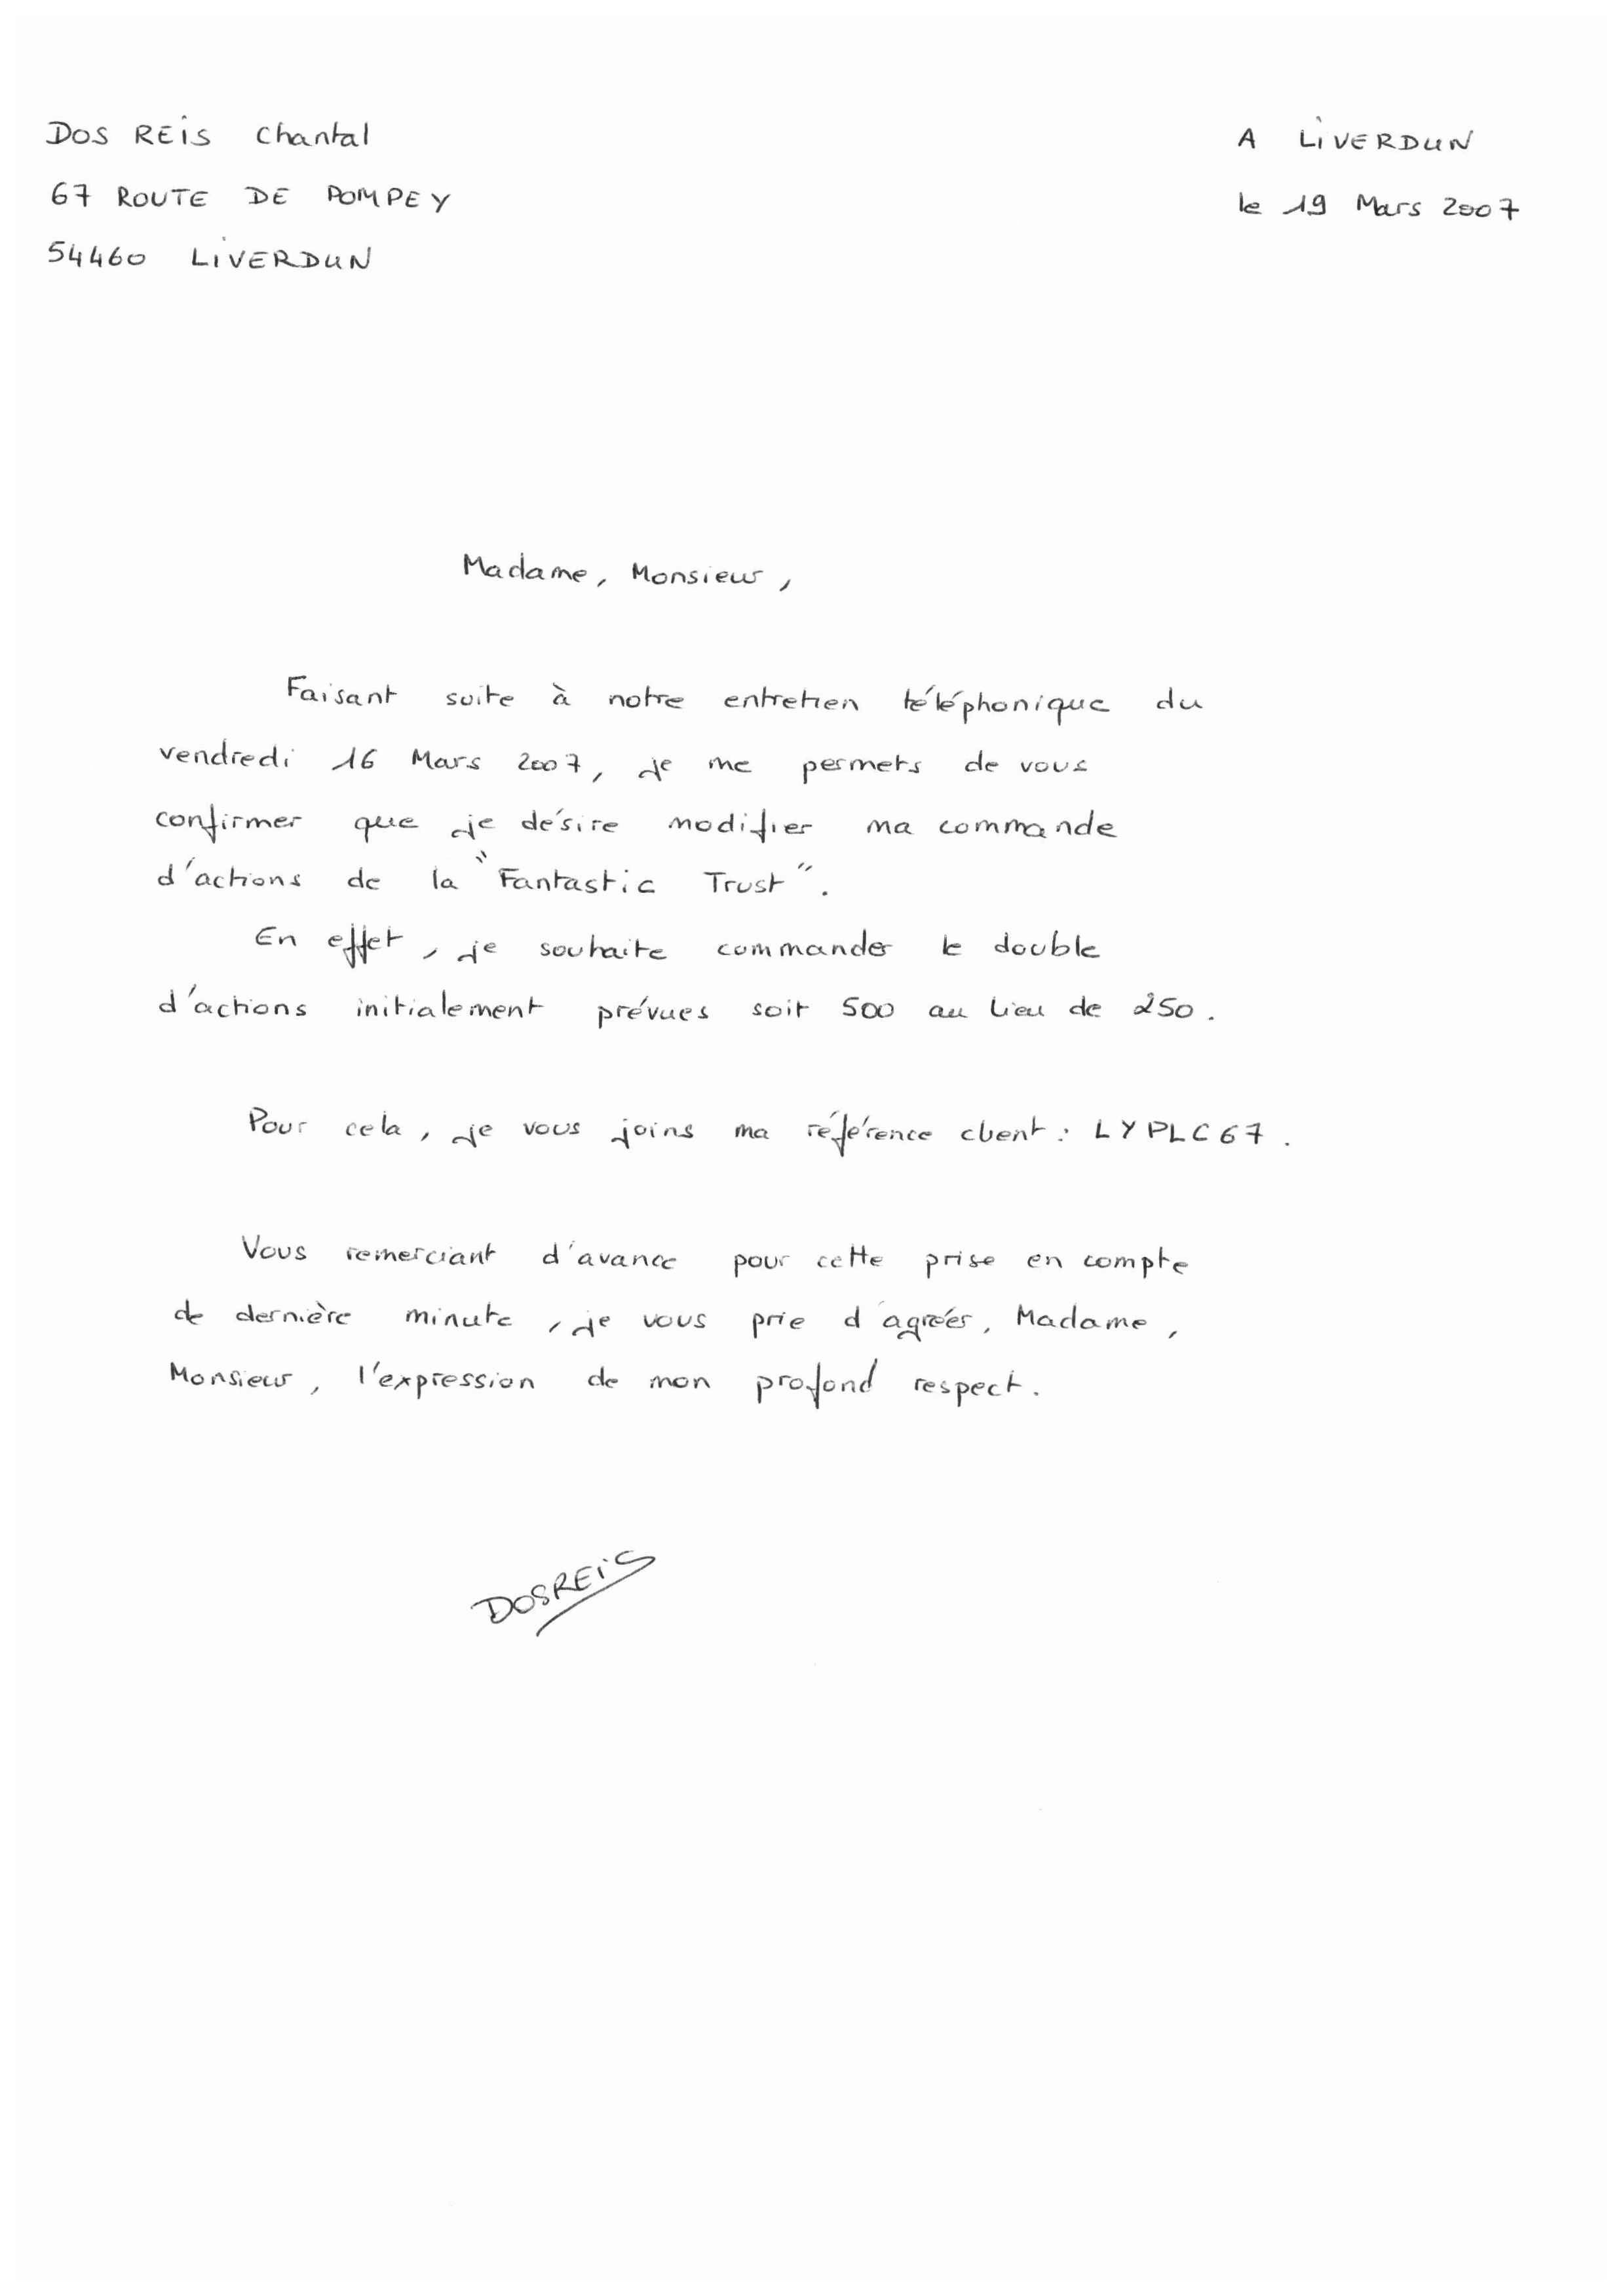 DOS REIS Chantal
67 ROUTE DE POMPEY
54460 LIVERDUN
A LIVERDUN
le 19 Mars 2007
Madame, Monsieur,
Faisant suite à notre entretien téléphonique du
vendredi 16 Mars 2007, je me permets de vous
confirmer que je désire modifier ma commande
d'actions de la "Fantastic Trust".
En effet, je souhaite commander le double
d'actions initialement prévues soit 500 au lieu de 250.
Pour cela, je vous joins ma référence client : LYPLC67.
Vous remerciant d'avance pour cette prise en compte
de dernière minute, je vous prie d'agréer, Madame,
Monsieur, l'expression de mon profond respect.
DOSREIS